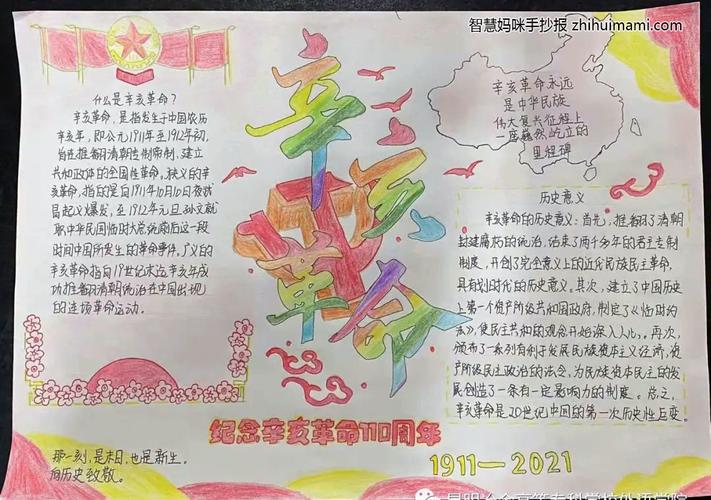 智慧妈咪手抄报 zhihuimami.com
什么是辛亥革命？
辛亥革命，是指发生于中国农历
辛亥年，即公元1911年至1912年初，
旨在推翻清朝专制帝制、建立
共和政体的全国性革命。狭义的辛
亥革命，指的是自1911年10月10日夜武
昌起义爆发，至1912年元旦孙文就
职中华民国临时大总统前后这一段
时间中国所发生的革命事件。广义的
辛亥革命指自19世纪末迄辛亥年成
功推翻清朝统治在中国出现
的连场革命运动。
辛亥革命
辛亥革命永远
是中华民族
伟大复兴征程上
一座巍然屹立的
里程碑
历史意义
辛亥革命的历史意义：首先，推翻了清朝
封建腐朽的统治，结束了两千多年的君主专制
制度，开创了完全意义上的近代民族民主革命，
具有划时代的历史意义。其次，建立了中国历史
上第一个资产阶级共和国政府，制定了《临时约
法》，使民主共和的观念开始深入人心。再次，
颁布了一系列有利于发展民族资本主义经济，资
产阶级民主政治的法令，为民族资本民主的发
展创造了一条有一定影响力的制度。总之，
辛亥革命是20世纪中国的第一次历史性巨变。
纪念辛亥革命110周年
1911—2021
那一刻，是末日，也是新生。
向历史致敬。